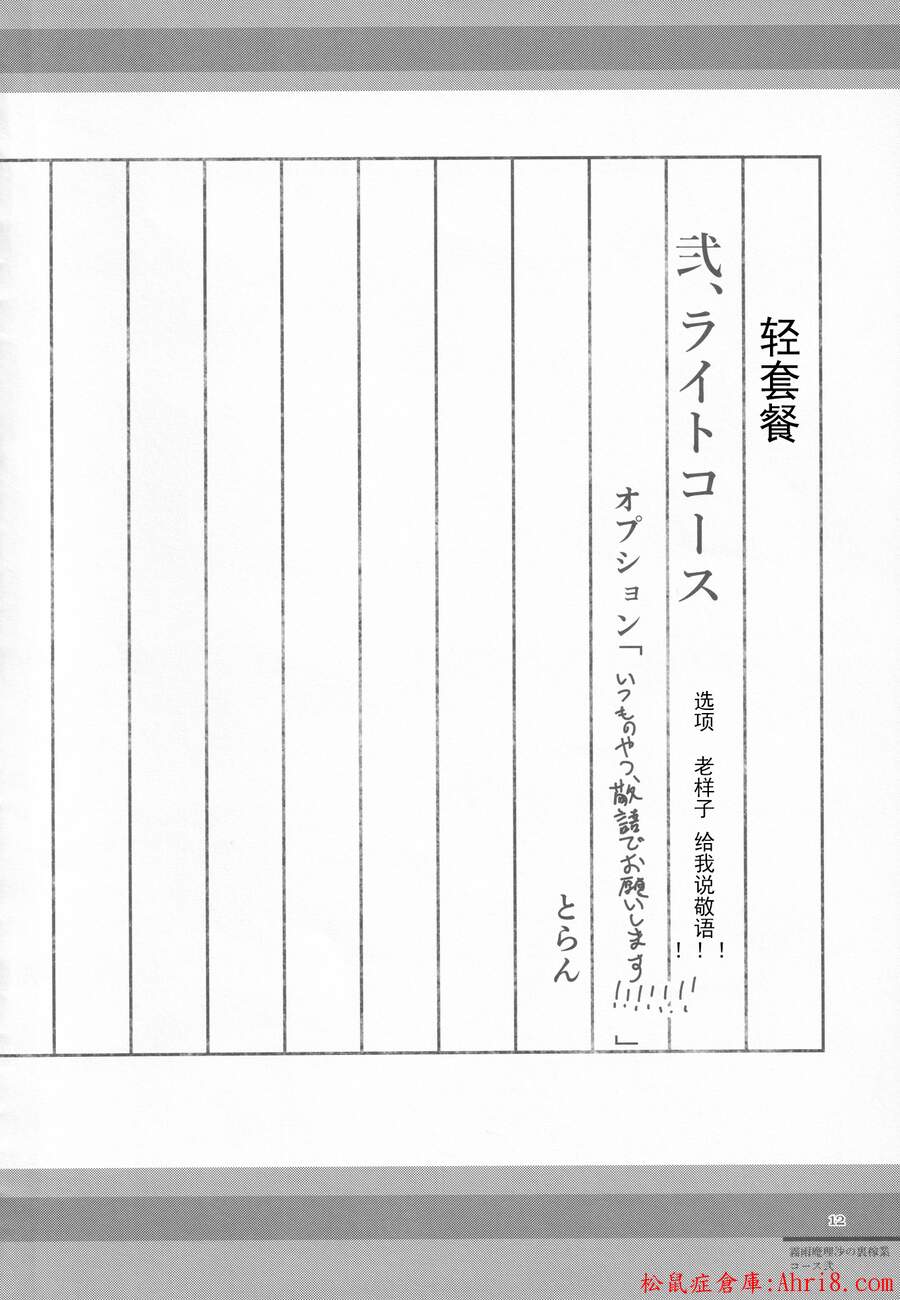 轻套餐
弐、ライトコース
选项 老样子 给我说敬语!!!
オプション「いつものやつ、敬語でお願いします!!!!!!!」
とらん
12
霧雨魔理沙の裏稼業
コース弐
松鼠症倉庫:Ahri8.com